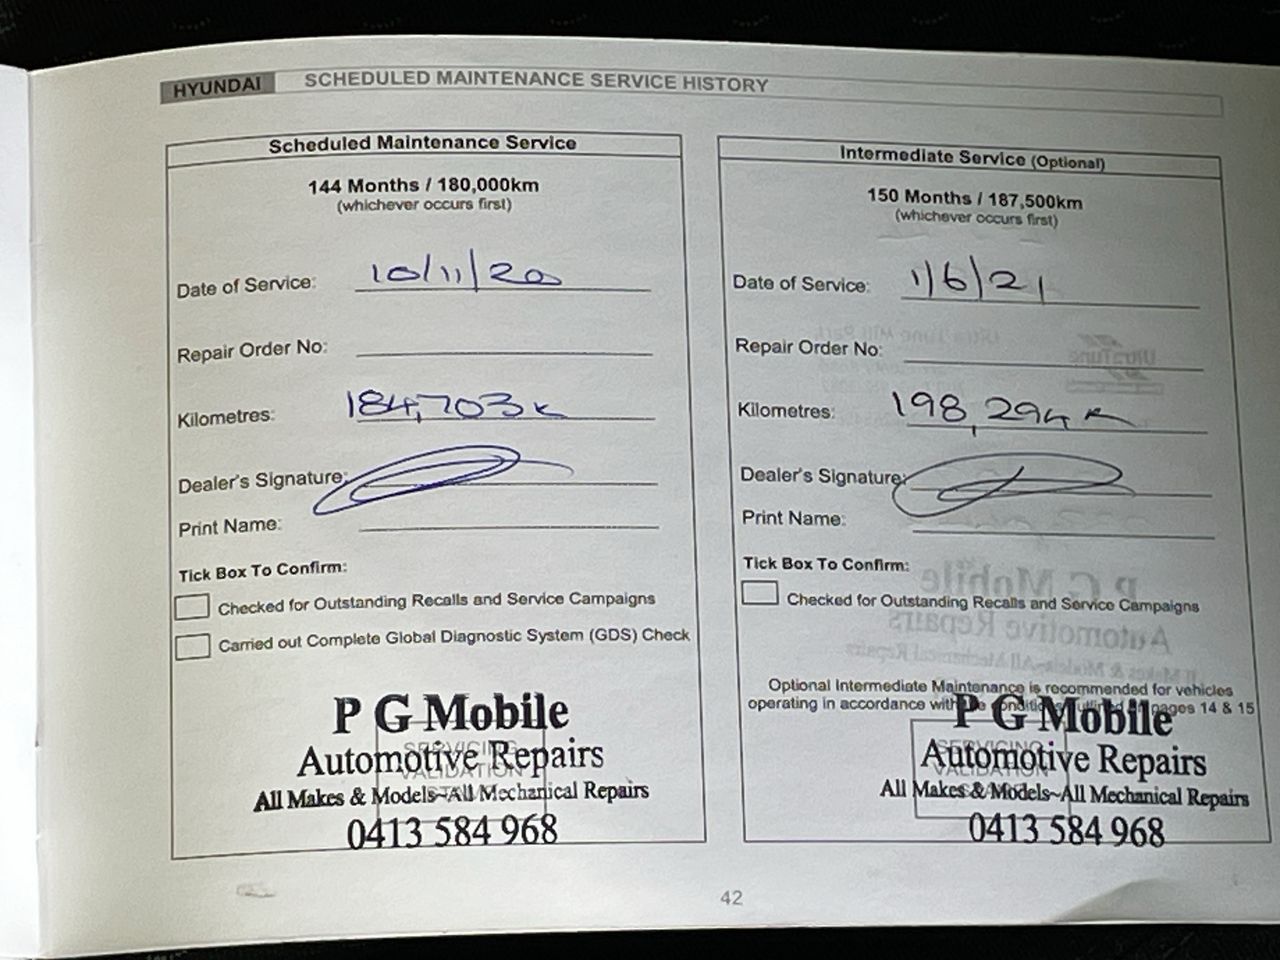 HYUNDAI SCHEDULED MAINTENANCE SERVICE HISTORY
Scheduled Maintenance Service
144 Months / 180,000km
(whichever occurs first)
Date of Service: 10/11/20
Repair Order No:
Kilometres: 184,703k
Dealer's Signature:
Print Name:
Tick Box To Confirm:
Checked for Outstanding Recalls and Service Campaigns
Carried out Complete Global Diagnostic System (GDS) Check
SERVICING
VALIDATION
P G Mobile
Automotive Repairs
All Makes & Models~All Mechanical Repairs
0413 584 968
Intermediate Service (Optional)
150 Months / 187,500km
(whichever occurs first)
Date of Service: 1/6/21
Repair Order No:
Kilometres: 198,294k
Dealer's Signature:
Print Name:
Tick Box To Confirm:
Checked for Outstanding Recalls and Service Campaigns
Optional Intermediate Maintenance is recommended for vehicles
operating in accordance with pages 14 & 15
SERVICING
VALIDATION
P G Mobile
Automotive Repairs
All Makes & Models~All Mechanical Repairs
0413 584 968
42